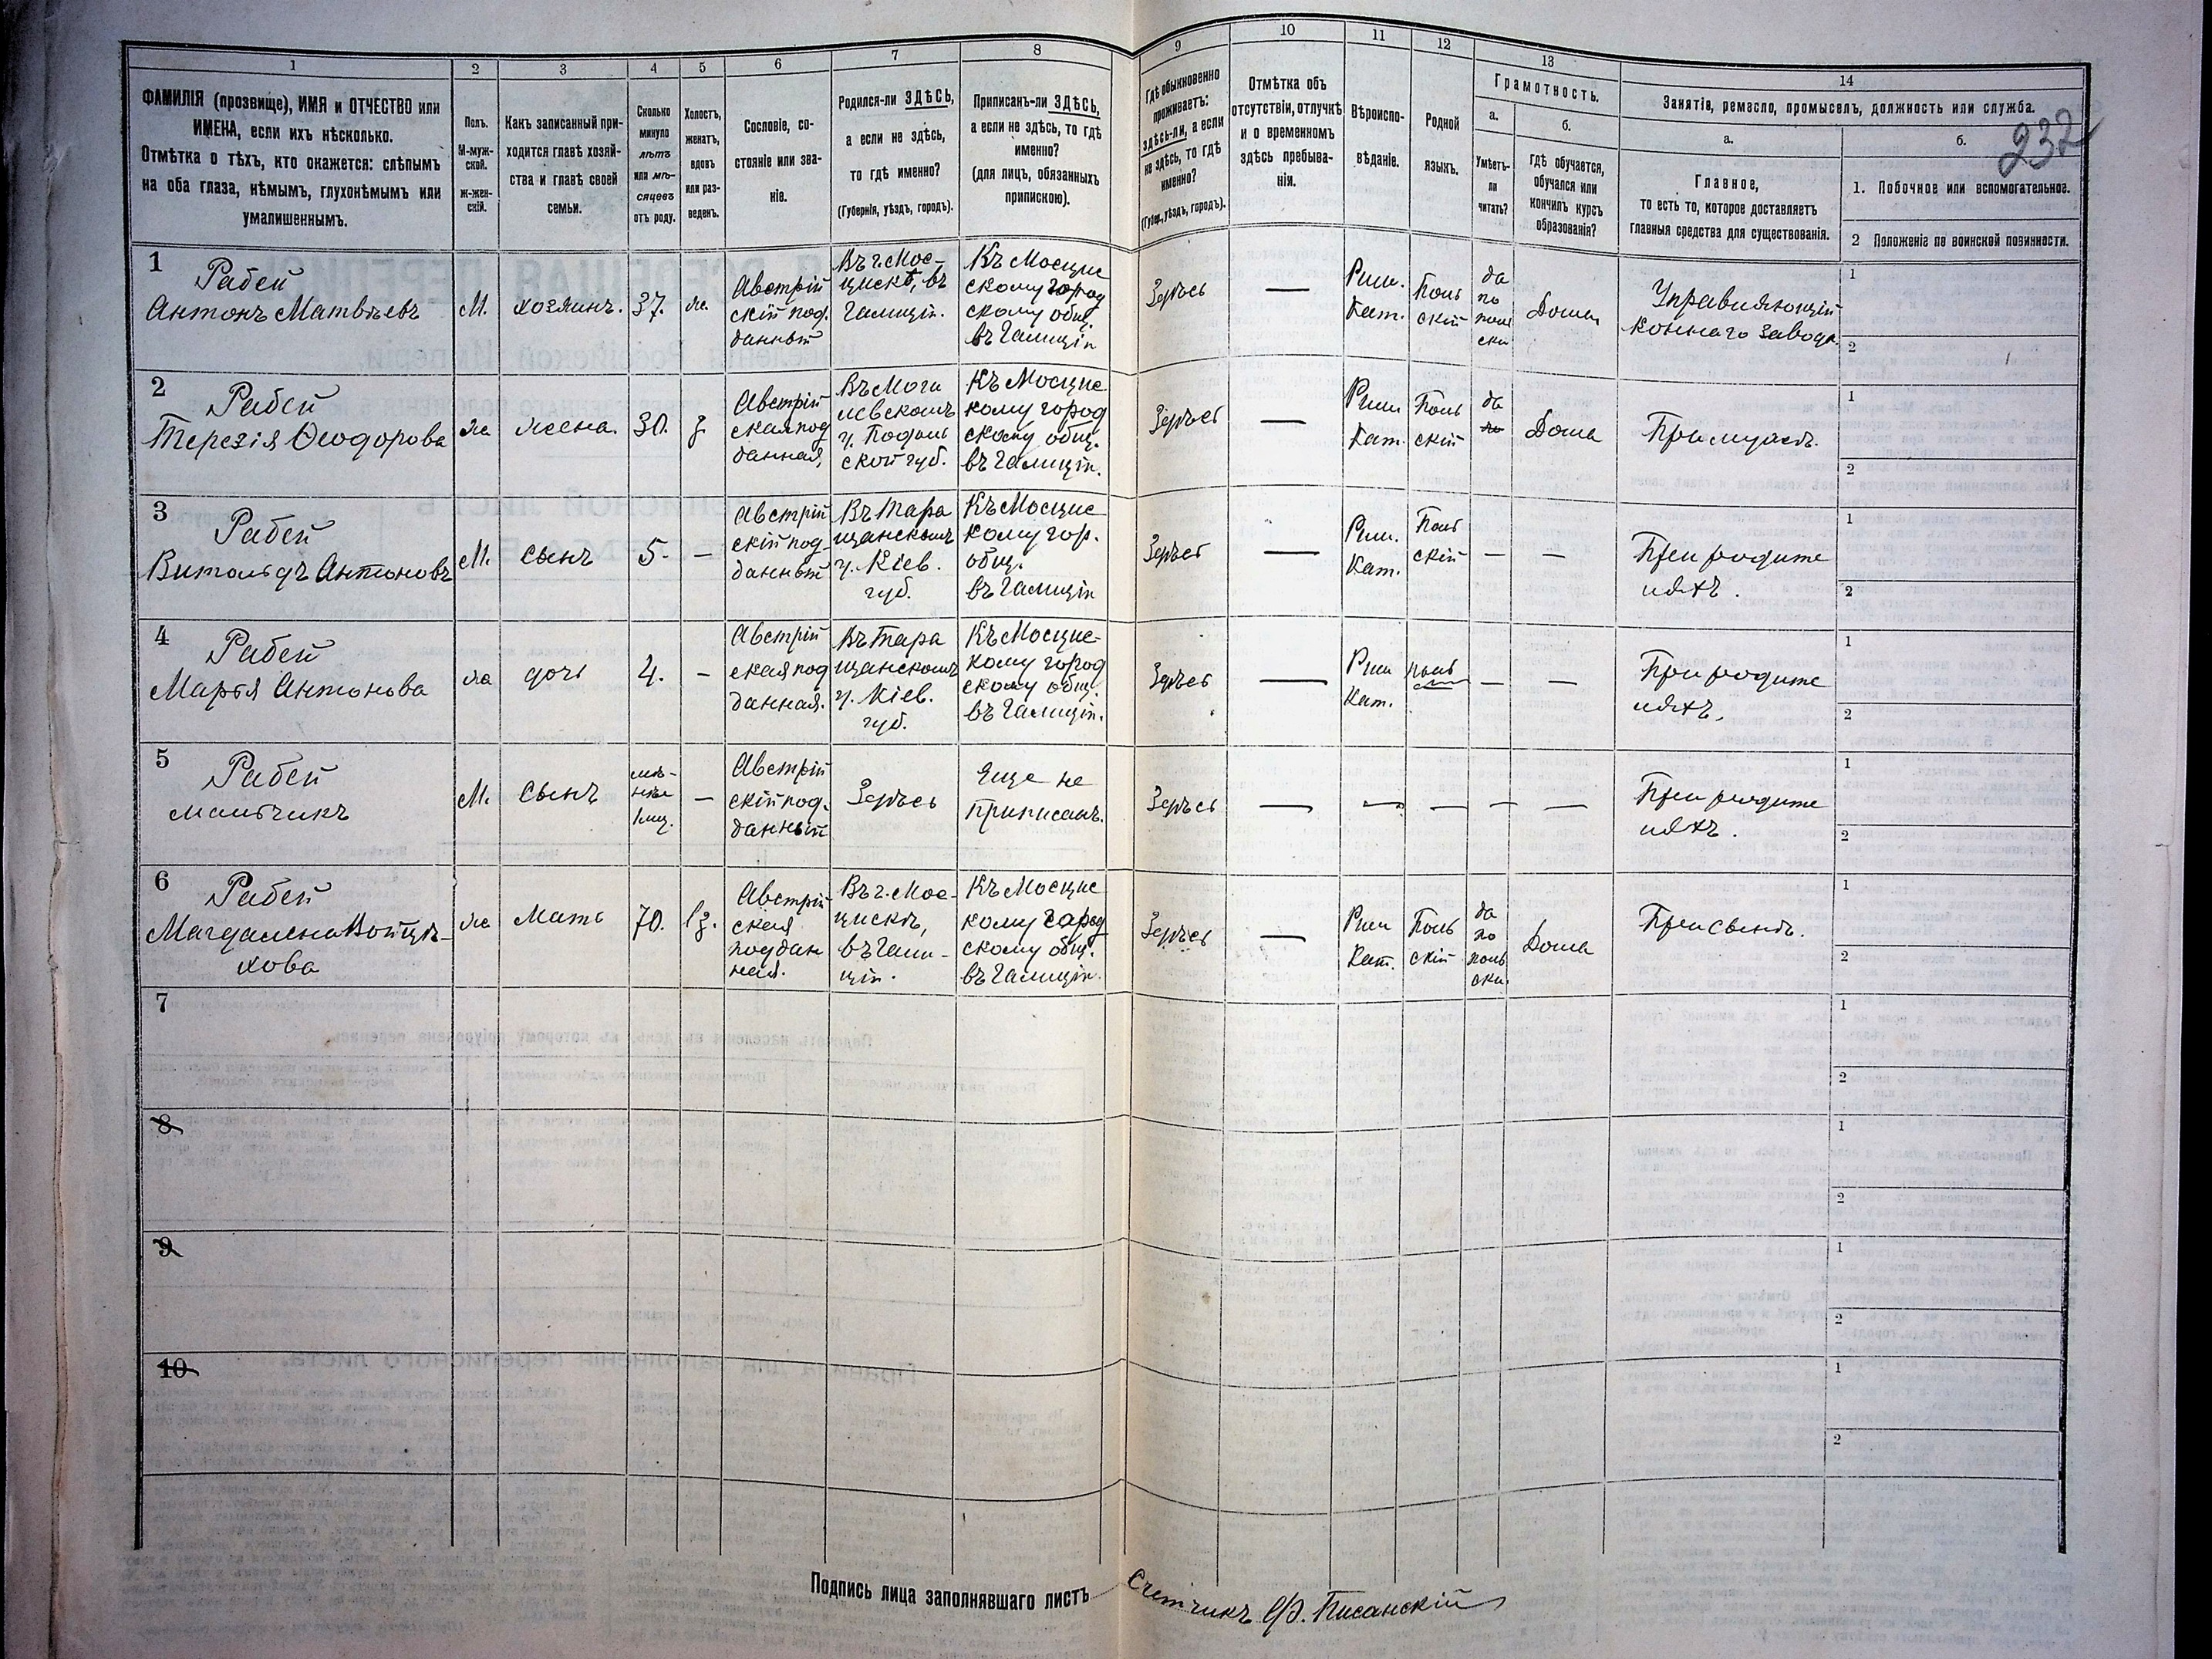 1
2
3
4
5
6
7
8
9
10
11
12
13
14
ФАМИЛІЯ (прозвище), ИМЯ и ОТЧЕСТВО или
ИМЕНА, если ихъ нѣсколько.
Отмѣтка о тѣхъ, кто окажется: слѣпымъ
на оба глаза, нѣмымъ, глухонѣмымъ или
умалишеннымъ.
Полъ.
М-муж-
ской.
ж-жен-
скій.
Какъ записанный при-
ходится главѣ хозяй-
ства и главѣ своей
семьи.
Сколько
минуло
лѣтъ
или мѣ-
сяцевъ
отъ роду.
Холостъ,
женатъ,
вдовъ
или раз-
веденъ.
Сословіе, со-
стояніе или зва-
ніе.
Родился-ли ЗДѢСЬ,
а если не здѣсь,
то гдѣ именно?
(Губернія, уѣздъ, городъ).
Приписанъ-ли ЗДѢСЬ,
а если не здѣсь, то гдѣ
именно?
(для лицъ, обязанныхъ
припискою).
Гдѣ обыкновенно
проживаетъ:
здѣсь-ли, а если
не здѣсь, то гдѣ
именно?
(Губер., уѣздъ, городъ).
Отмѣтка объ
отсутствіи, отлучкѣ
и о временномъ
здѣсь пребыва-
ніи.
Вѣроиспо-
вѣданіе.
Родной
языкъ.
Грамотность.
а.
Умѣетъ-
ли
читать?
б.
гдѣ обучается,
обучался или
кончилъ курсъ
образованія?
Занятіе, ремесло, промыселъ, должность или служба.
а.
Главное,
то есть то, которое доставляетъ
главныя средства для существованія.
б.
232
1. Побочное или вспомогательное.
2 Положеніе по воинской повинности.
1
Рабей
Антонъ Матвѣевъ
М.
хозяинъ.
37.
ж.
Австрій
скій под.
данный
Въ г. Мос-
цискѣ, въ
Галиціи.
Къ Мосцис
скому город
скому общ.
въ Галиціи
Здѣсь
—
Рим.
Кат.
Поль
скій
да
по
поль
ски
Дома
Управляющій
коннаго завода.
1
2
2
Рабей
Терезія Ѳеодорова
ж
жена.
30.
з
Австрій
ская под
данная,
Въ Моги
левскомъ
у. Подоль
ской губ.
Къ Мосцис
кому город
скому общ.
въ Галиціи.
Здѣсь
—
Рим
Кат.
Поль
скій
да
по
Дома
При мужѣ.
1
2
3
Рабей
Витольдъ Антоновъ
М.
сынъ
5.
—
Австрій
скій под-
данный
Въ Тара
щанскомъ
у. Кіев.
губ.
Къ Мосцис
кому гор.
общ.
въ Галиціи
Здѣсь
—
Рим.
Кат.
Поль
скій
—
—
При родите
ляхъ.
1
2
4
Рабей
Марья Антонова
ж
дочь
4.
—
Австрій
ская под
данная.
Въ Тара
щанскомъ
у. Кіев.
губ.
Къ Мосцис-
кому город
скому общ.
въ Галиціи.
Здѣсь
—
Рим
Кат.
поль
—
—
При родите
ляхъ.
1
2
5
Рабей
мальчикъ
М.
сынъ
—
Австрій
скій под.
данный
Здѣсь
Еще не
приписанъ.
Здѣсь
—
—
—
—
—
При родите
ляхъ.
1
2
6
Рабей
Магдалена Войцѣ-
хова
ж
Мать
70.
Австрій
ская
поддан
ная.
Въ г. Мос-
цискѣ,
въ Гали-
ціи.
Къ Мосцис
кому город
скому общ.
въ Галиціи.
Здѣсь
—
Рим
Кат.
Поль
скій
да
по
поль
ски.
Дома
При сынѣ.
1
2
7
1
2
8
1
2
9
1
2
10
1
2
Подпись лица заполнявшаго листъ
Счетчикъ Ф. Писанскій